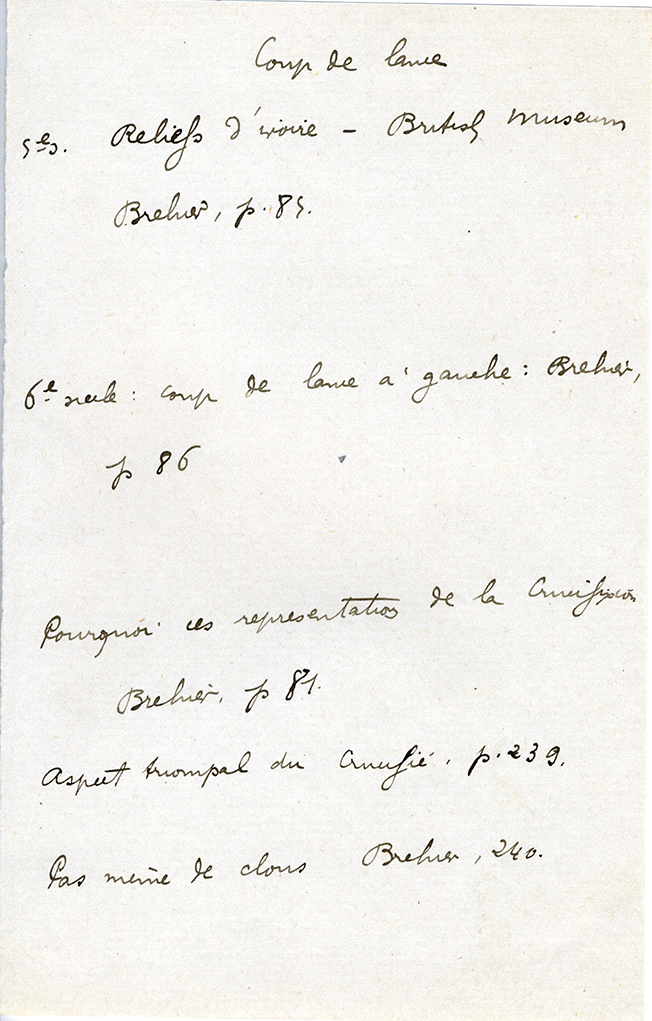 Coup de lance
5e s. Reliefs d'ivoire - British Museum
Brehier, p. 85.
6e siecle : coup de lance a' gauche : Brehier,
p 86
Pourquoi ces representations de la Crucifixion
Brehier, p 81.
Aspect triompal du Crucifié. p. 239.
Pas même de clous Brehier, 240.